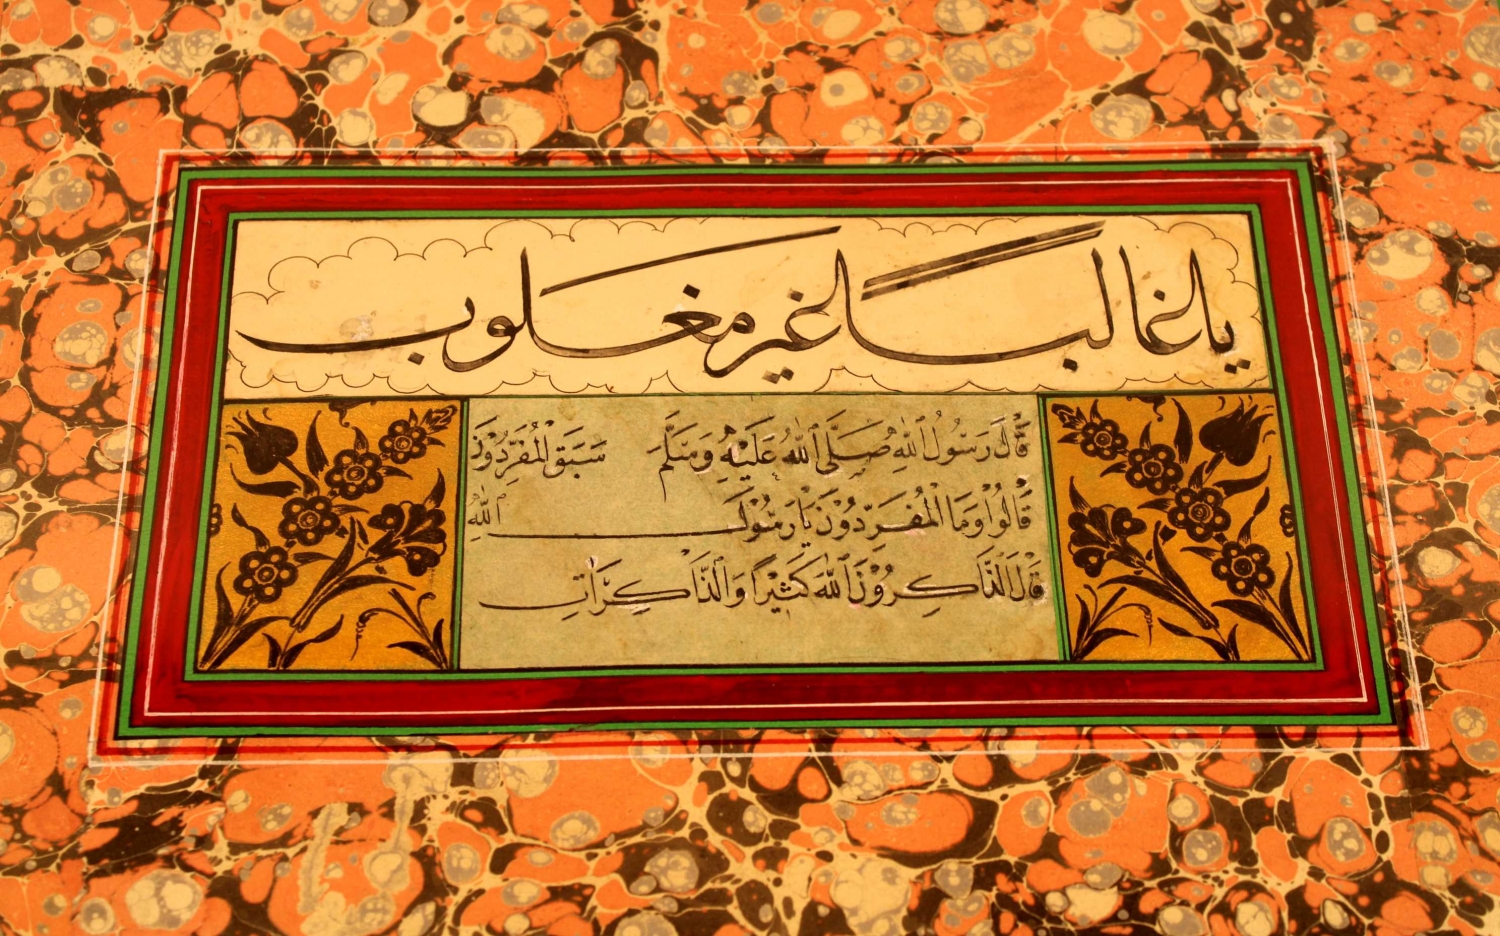 يا غالبا غير مغلوب
قَالَ رَسُولُ اللهِ صَلَّى اللهُ عَلَيْهِ وَسَلَّمَ سَبَقَ الْمُفَرِّدُونَ
قَالُوا وَمَا الْمُفَرِّدُونَ يَا رَسُولَ اللهِ
قَالَ الذَّاكِرُونَ اللهَ كَثِيرًا وَالذَّاكِرَاتِ